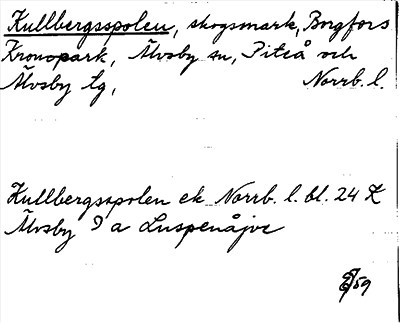 Kullbergsspolen, skogsmark, Borgfors
Kronopark, Älvsby sn, Piteå och
Älvsby tg, Norrb. l.
Kullbergsspolen ek Norrb. l. bl. 24 Z
Älvsby 9 a Luspenåjve
59